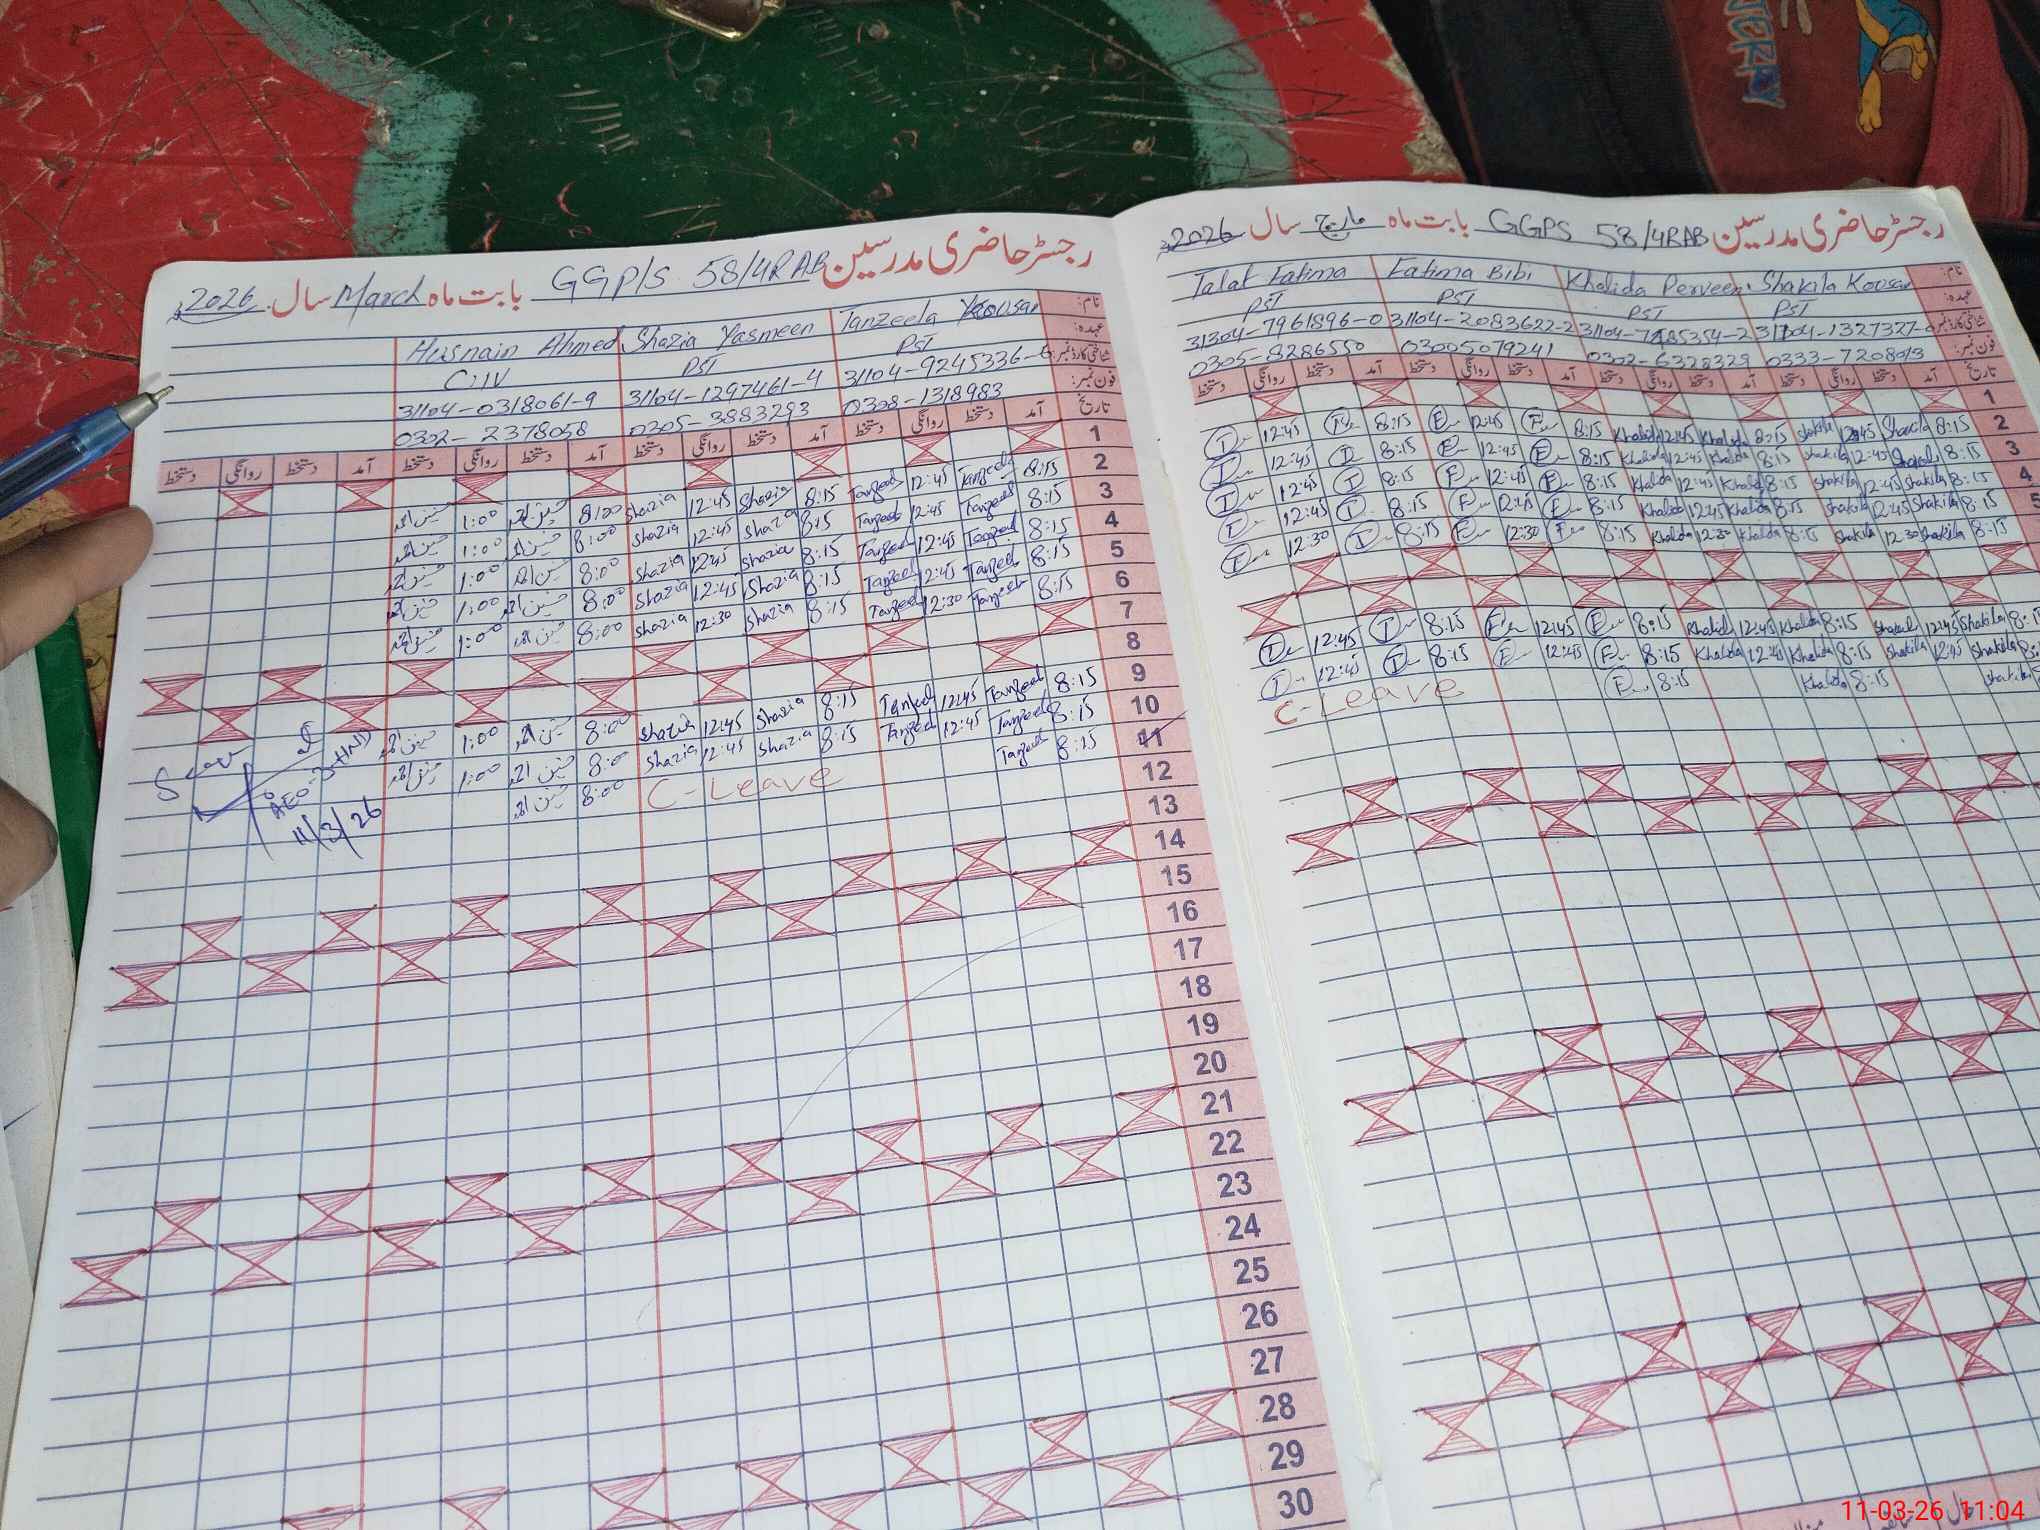 رجسٹر حاضری مدرسین GGP/S 58/4RAB بابت ماہ March سال 2026
نام: Tanzeela Kousar Shazia Yasmeen Husnain Ahmed
عہدہ: PST PST C-IV
شناختی کارڈ نمبر: 31104-9245336-6 31104-1297461-4 31104-0318061-9
فون نمبر: 0308-1318983 0305-3883293 0302-2378058
تاریخ آمد دستخط روانگی دستخط آمد دستخط روانگی دستخط آمد دستخط روانگی دستخط آمد دستخط روانگی دستخط
1
2 8:15 Tanzeela 12:45 Tanzeela 8:15 Shazia 12:45 Shazia 8:00 حسنین احمد 1:00 حسنین احمد
3 8:15 Tanzeela 12:45 Tanzeela 8:15 Shazia 12:45 Shazia 8:00 حسنین احمد 1:00 حسنین احمد
4 8:15 Tanzeela 12:45 Tanzeela 8:15 Shazia 12:45 Shazia 8:00 حسنین احمد 1:00 حسنین احمد
5 8:15 Tanzeel 12:45 Tanzeel 8:15 Shazia 12:45 Shazia 8:00 حسنین احمد 1:00 حسنین احمد
6 8:15 Tanzeel 12:30 Tanzeel 8:15 Shazia 12:30 Shazia 8:00 حسنین احمد 1:00 حسنین احمد
7
8
9 8:15 Tanzeel 12:45 Tanzeel 8:15 Shazia 12:45 Shazia 8:00 حسنین احمد 1:00 حسنین احمد
10 8:15 Tanzeel 12:45 Tanzeel 8:15 Shazia 12:45 Shazia 8:00 حسنین احمد 1:00 حسنین احمد
11 8:15 Tanzeel C-Leave 8:00 حسنین احمد
AEO
11/3/26
12
13
14
15
16
17
18
19
20
21
22
23
24
25
26
27
28
29
30
رجسٹر حاضری مدرسین GGPS 58/4RAB بابت ماہ مارچ سال 2026
نام: Shakila Kousar Khalida Perveen Fatima Bibi Talat Fatima
عہدہ: PST PST PST PST
شناختی کارڈ نمبر: 31104-1327327 31104-7485354-2 31104-2083622-2 31304-7961896-0
فون نمبر: 0333-7208013 0302-6328329 03005079241 0305-8286550
تاریخ آمد دستخط روانگی دستخط آمد دستخط روانگی دستخط آمد دستخط روانگی دستخط آمد دستخط روانگی دستخط
1
2 8:15 Shakila 12:45 Shakila 8:15 Khalida 12:45 Khalida 8:15 F 12:45 F 8:15 T 12:45 T
3 8:15 Shakila 12:45 Shakila 8:15 Khalida 12:45 Khalida 8:15 F 12:45 F 8:15 T 12:45 T
4 8:15 Shakila 12:45 Shakila 8:15 Khalida 12:45 Khalida 8:15 F 12:45 F 8:15 T 12:45 T
5 8:15 Shakila 12:45 Shakila 8:15 Khalida 12:45 Khalida 8:15 F 12:45 F 8:15 T 12:45 T
8:15 Shakila 12:30 Shakila 8:15 Khalida 12:30 Khalida 8:15 F 12:30 F 8:15 T 12:30 T
Shakila 12:45 Shakila 8:15 Khalida 12:45 Khalida 8:15 F 12:45 F 8:15 T 12:45 T
Shakila 12:45 Shakila 8:15 Khalida 12:45 Khalida 8:15 F 12:45 F 8:15 T 12:45 T
Shakila 8:15 Khalida 8:15 F C-Leave
11-03-26 11:04